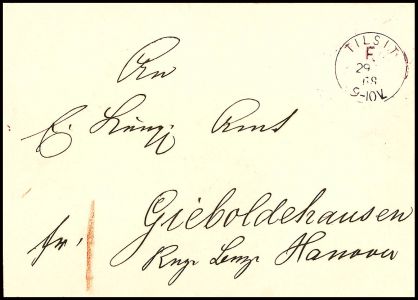 TILSIT
F.
29
68
9-10V.
An
Ei. Königl Amt
fr.
Gieboldehausen
Hanover